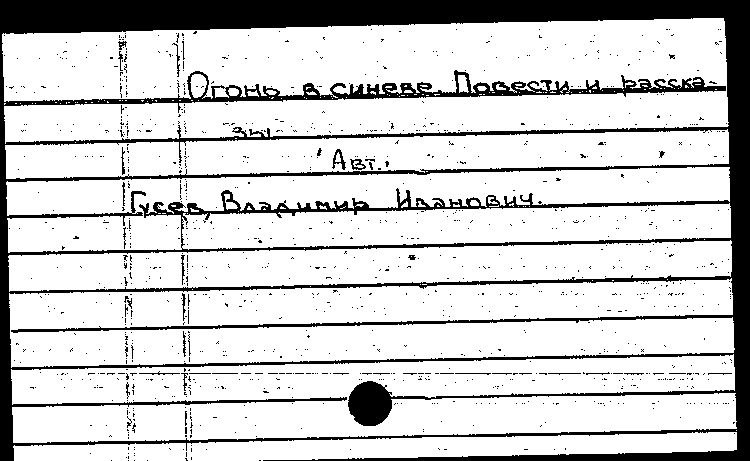 Огонь в синеве. Повести и расска-
зы.
Авт.:
Гусев, Владимир Иванович.